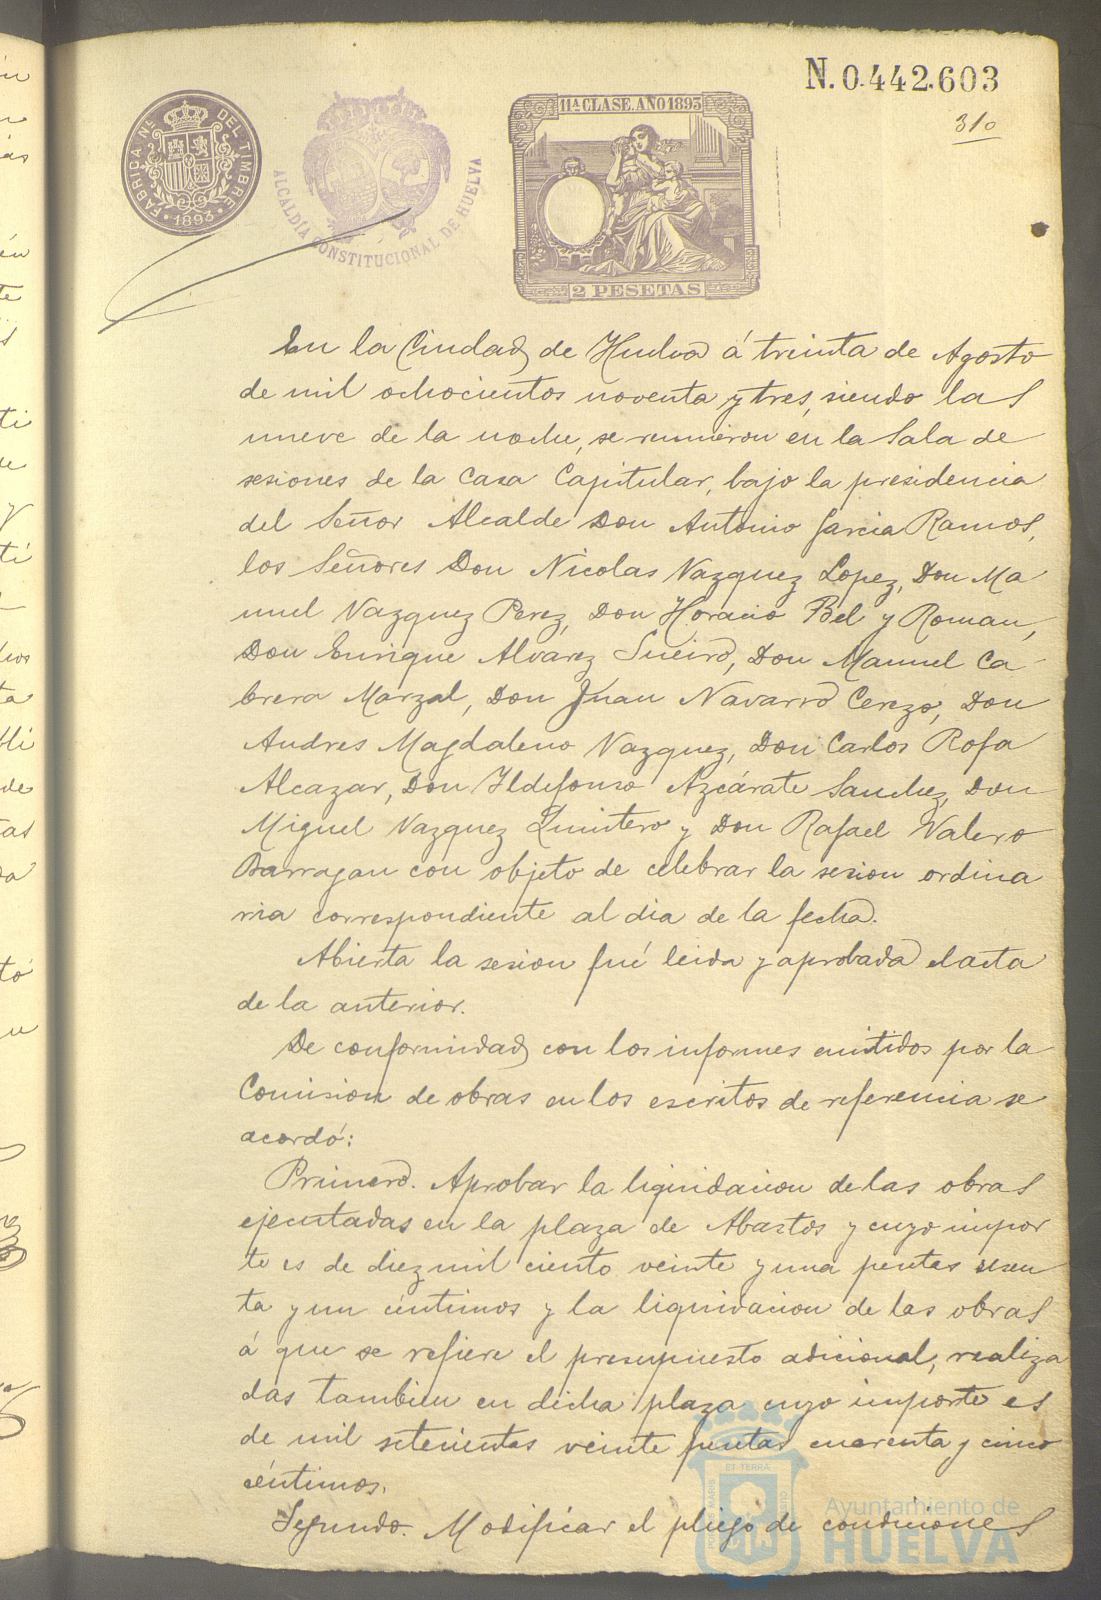 N.0.442.603
310
FÁBRICA NL. DEL TIMBRE
1893
ALCALDÍA CONSTITUCIONAL DE HUELVA
11ª CLASE. AÑO 1893
2 PESETAS
En la Ciudad de Huelva á treinta de Agosto
de mil ochocientos noventa y tres, siendo las
nueve de la noche, se reunieron en la Sala de
sesiones de la Casa Capitular, bajo la presidencia
del Señor Alcalde Don Antonio Garcia Ramos,
los Señores Don Nicolas Vazquez Lopez, Don Ma
nuel Vazquez Perez, Don Horacio Bel y Roman,
Don Enrique Alvarez Sueiro, Don Manuel Ca
brera Marzal, Don Juan Navarro Cerezo, Don
Andres Magdaleno Vazquez, Don Carlos Rofa
Alcazar, Don Ildefonso Azcárate Sanchez, Don
Miguel Vazquez Quintero y Don Rafael Valero
Barragan con objeto de celebrar la sesion ordina
ria correspondiente al dia de la fecha.
Abierta la sesion fué leida y aprobada el acta
de la anterior.
De conformidad con los informes emitidos por la
Comision de obras en los escritos de referencia se
acordó:
Primero. Aprobar la liquidacion de las obras
ejecutadas en la plaza de Abastos y cuyo impor
te es de diez mil ciento veinte y una pesetas sesen
ta y un céntimos y la liquidacion de las obras
á que se refiere el presupuesto adicional, realiza
das tambien en dicha plaza cuyo importe es
de mil setecientas veinte pesetas cuarenta y cinco
céntimos.
Segundo. Modificar el pliego de condiciones
Ayuntamiento de
HUELVA